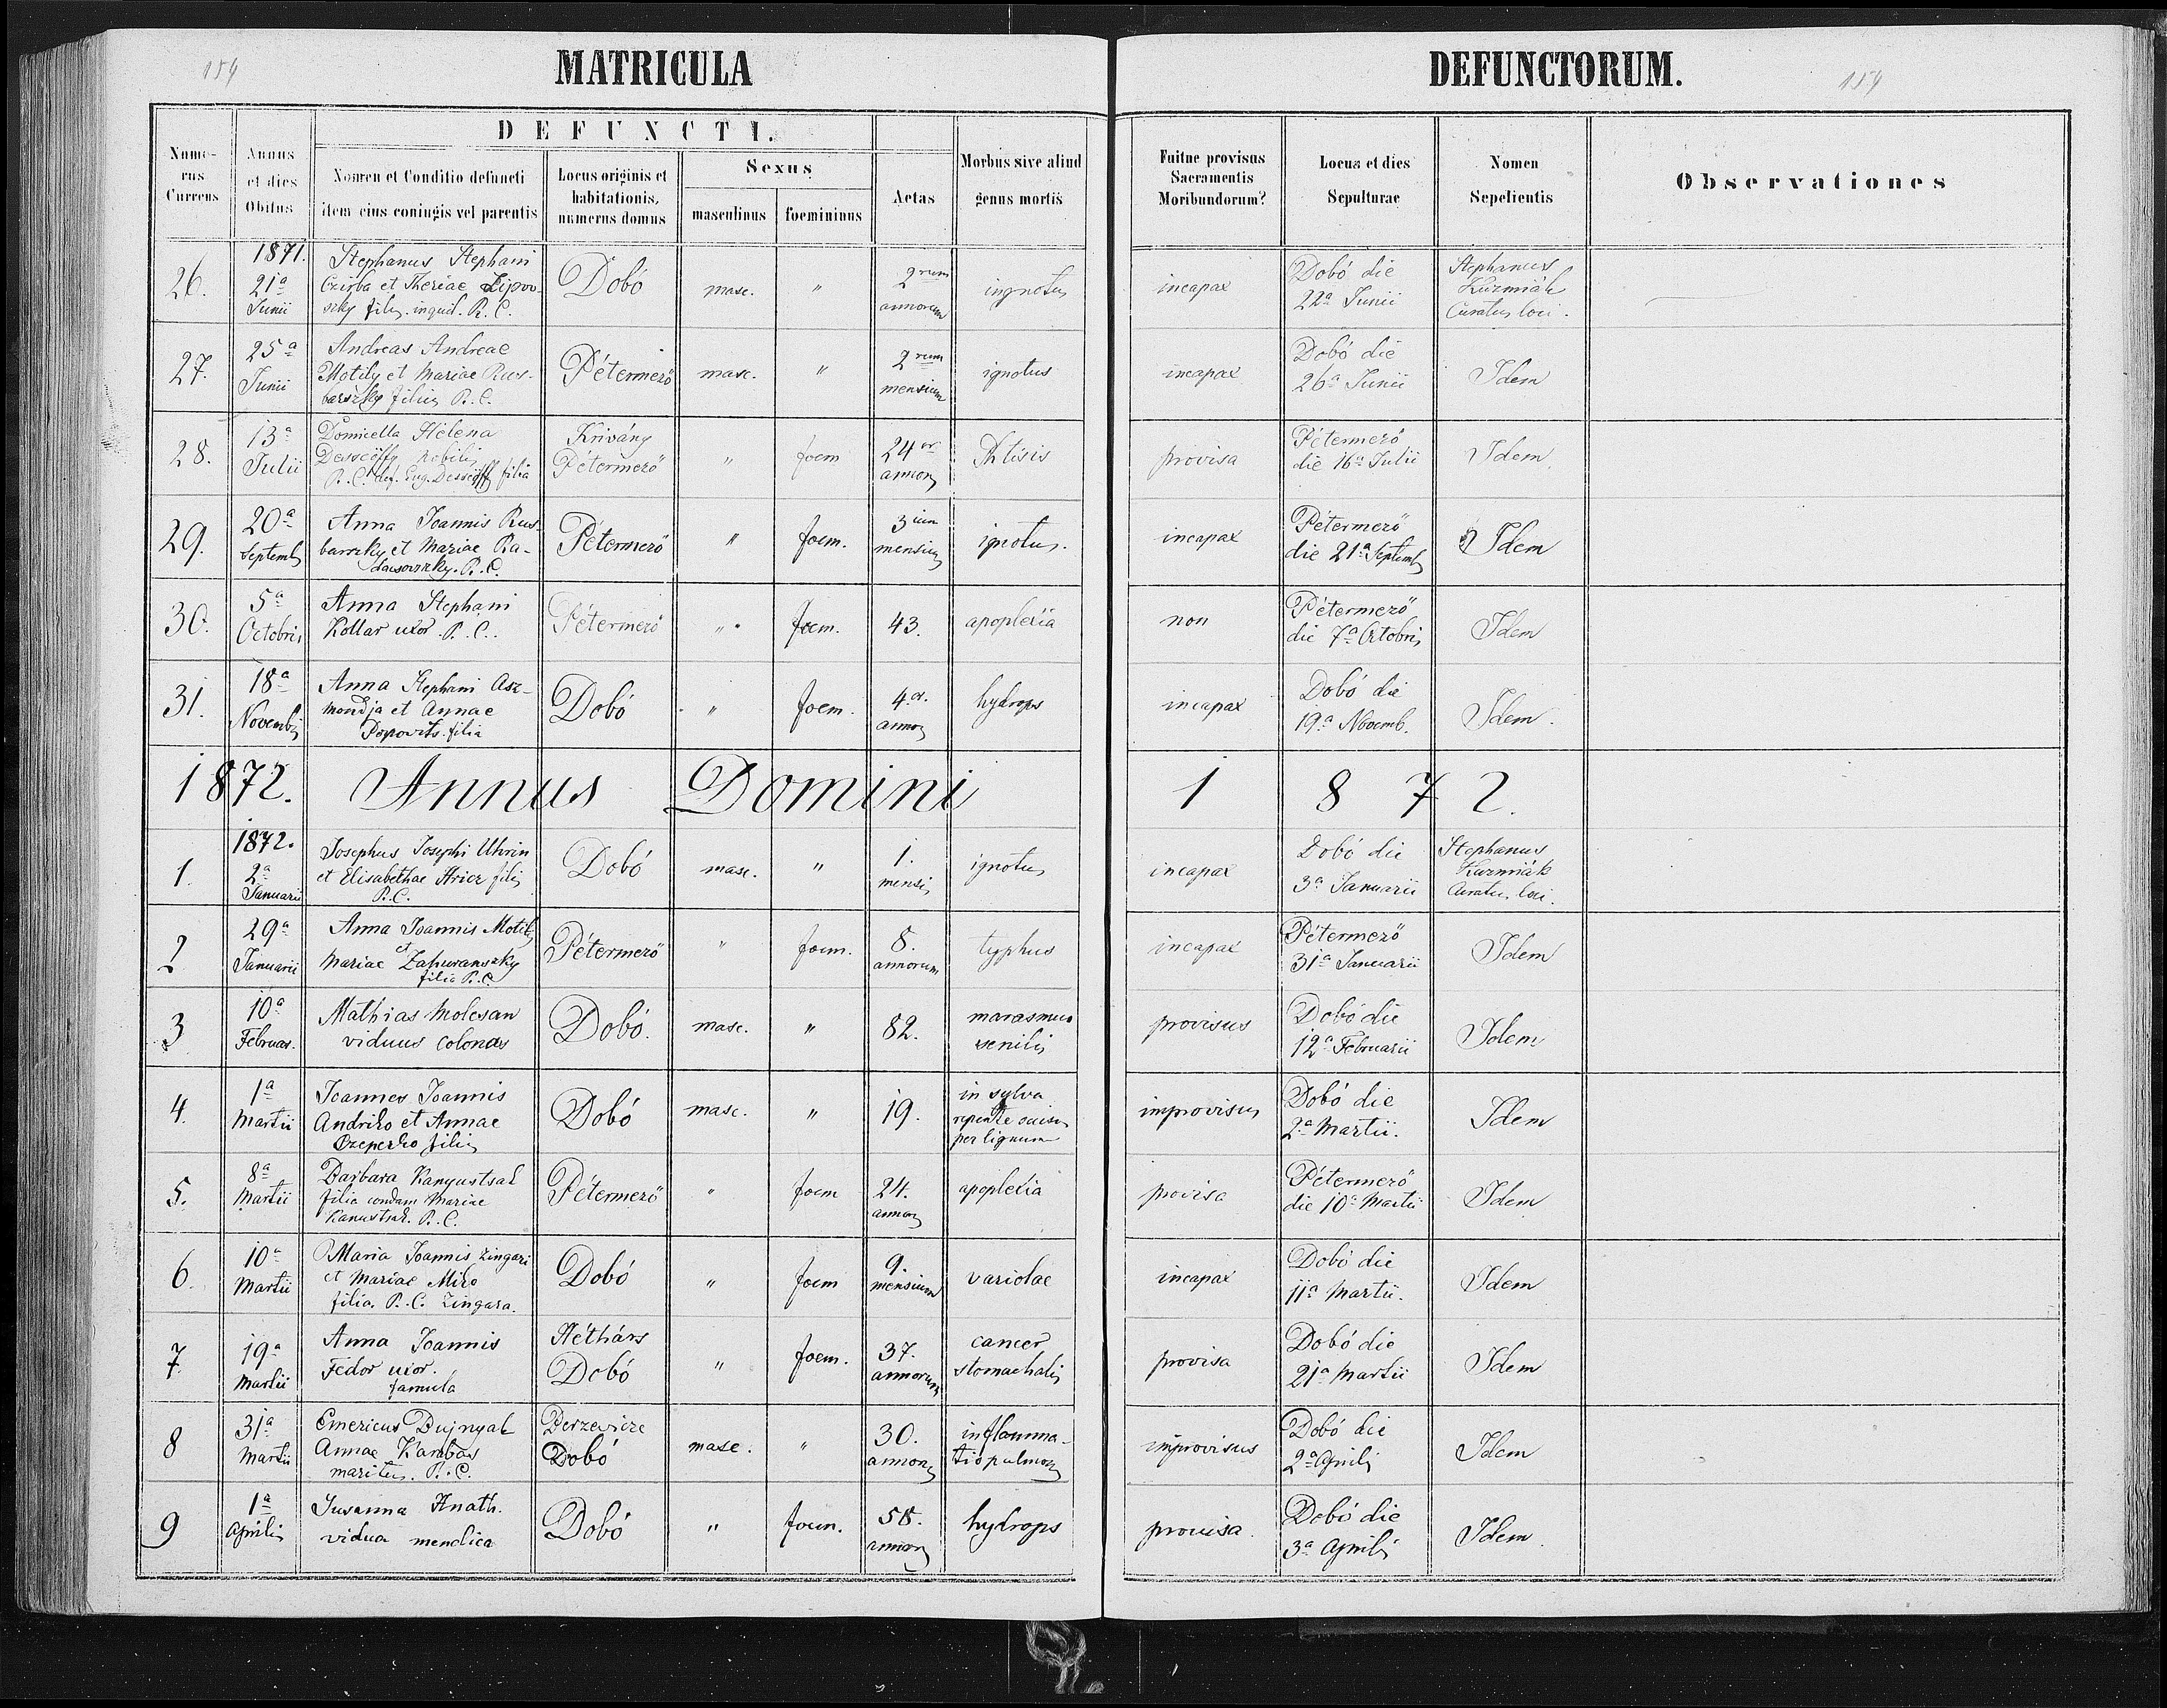 154
MATRICULA
DEFUNCTORUM.
154
Nume-
rus
Currens
Annus
et dies
Obitus
DEFUNCTI.
Nomen et Conditio defuncti
item eius coniugis vel parentis
Locus originis et
habitationis,
numerus domus
Sexus
masculinus
foemininus
Aetas
Morbus sive aliud
genus mortis
Fuitne provisus
Sacramentis
Moribundorum?
Locus et dies
Sepulturae
Nomen
Sepelientis
Observationes
26.
1871.
21a
Junii
Stephanus Stephani
Czirba et Theriae Lipov-
szky filis. inquil. R. C.
Dobó
masc.
"
2rum
annorum
ingnotus
incapax
Dobó die
22a Junii
Stephanus
Kuzmiák
Curatus loci.
27.
25a
Junii
Andreas Andreae
Motily et Mariae Rus-
barszky filius R. C.
Pétermező
masc.
"
2rum
mensium
ignotus
incapax
Dobó die
26a Junii
Idem
28.
13a
Julii
Domicella Helena
Dessőffy nobilis
R. C. def. Eug. Dessőffy filia
Krivány
Pétermező
"
foem
24or
annor
Phtisis
provisa
Pétermező
die 16a Julii
Idem.
29.
20a
Septemb
Anna Joannis Rus-
barszky et Mariae Ra-
R. C.
Pétermező
"
foem.
3ium
mensium
ignotus.
incapax
Pétermező
die 21a Septemb
Idem
30.
5a
Octobris
Anna Stephani
Kollar uxor. R. C.
Pétermező
"
foem.
43.
apoplexia
non
Pétermező
die 7a Octobris
Idem
31.
18a
Novembris
Anna Stephani Asz-
mondja et Annae
Popovits filia
Dobó
"
foem.
4or.
annor
hydrops
incapax
Dobó die
19a Novemb.
Idem.
1872. Annus Domini 1872.
1.
1872.
2a
Januarii
Josephus Josephi Uhrin
et Elisabethae Hricz filis
R. C.
Dobó
masc.
"
1.
mensis
ignotus
incapax
Dobó die
3a Januarii
Stephanus
Kuzmiák
Curatus loci.
2
29a
Januarii
Anna Joannis Motily
et
Mariae Zahuranszky
filia R. C.
Pétermező
"
foem.
8.
annorum
typhus
incapax
Pétermező
31a Januarii
Idem
3
10a
Februar.
Mathias Molcsan
viduus colonus
Dobó.
masc.
"
82.
marasmus
senilis
provisus
Dobó die
12a Februarii
Idem
4.
1a
Martii
Joannes Joannis
Andriko et Annae
Czeperko filis
Dobó
masc.
"
19.
in sylva
repente ocisus
per lignum
improvisus
Dobó die
2a Martii.
Idem
5.
8a
Martii
Barbara Kanyustsak
filia condam Mariae
Kanustsak. R. C.
Pétermező
"
foem
24.
annor
apoplexia
provisa
Pétermező
die 10a Martii
Idem
6.
10a
Martii
Maria Joannis zingari
et Mariae Miko
filia. R. C. zingara.
Dobó
"
foem
9.
mensium
variolae
incapax
Dobó die
11a Martii.
Idem
7.
19a
Martii
Anna Joannis
Fedor uxor.
famula
Héthárs
Dobó
"
foem.
37.
annorum
cancer
stomachalis
provisa
Dobó die
21a Martii
Idem
8
31a
Martii
Emericus Dujnyak
Annae Kambas
maritus. R. C.
Berzevicze
Dobó
masc.
"
30.
annor
inflamma-
tio pulmon
improvisus
Dobó die
2a Aprilis
Idem
9
1a
Aprilis
Susanna Hnath.
vidua mendica
Dobó
"
foem.
58.
annor
hydrops
provisa.
Dobó die
3a Aprilis
Idem.